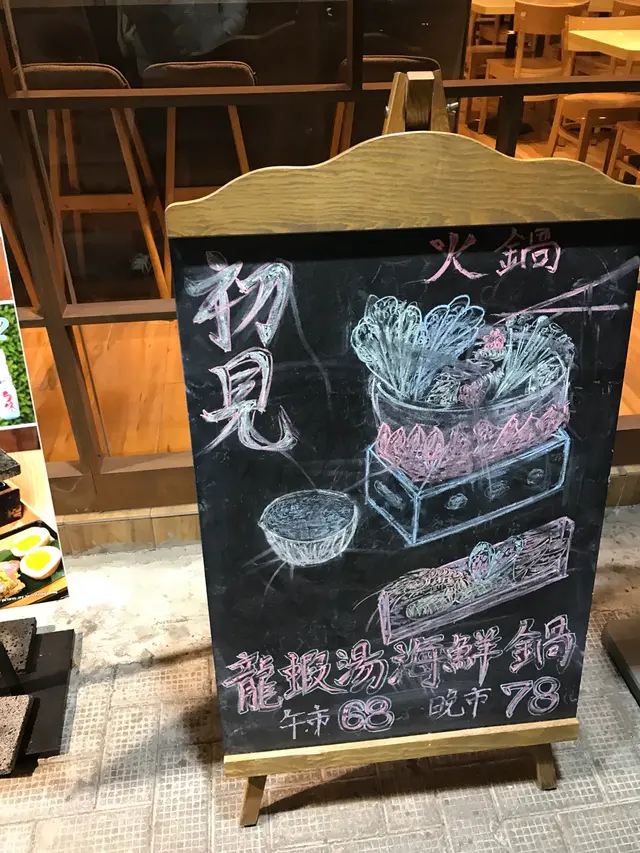 火鍋
初見
龍蝦湯海鮮鍋
午市 68 晚市 78